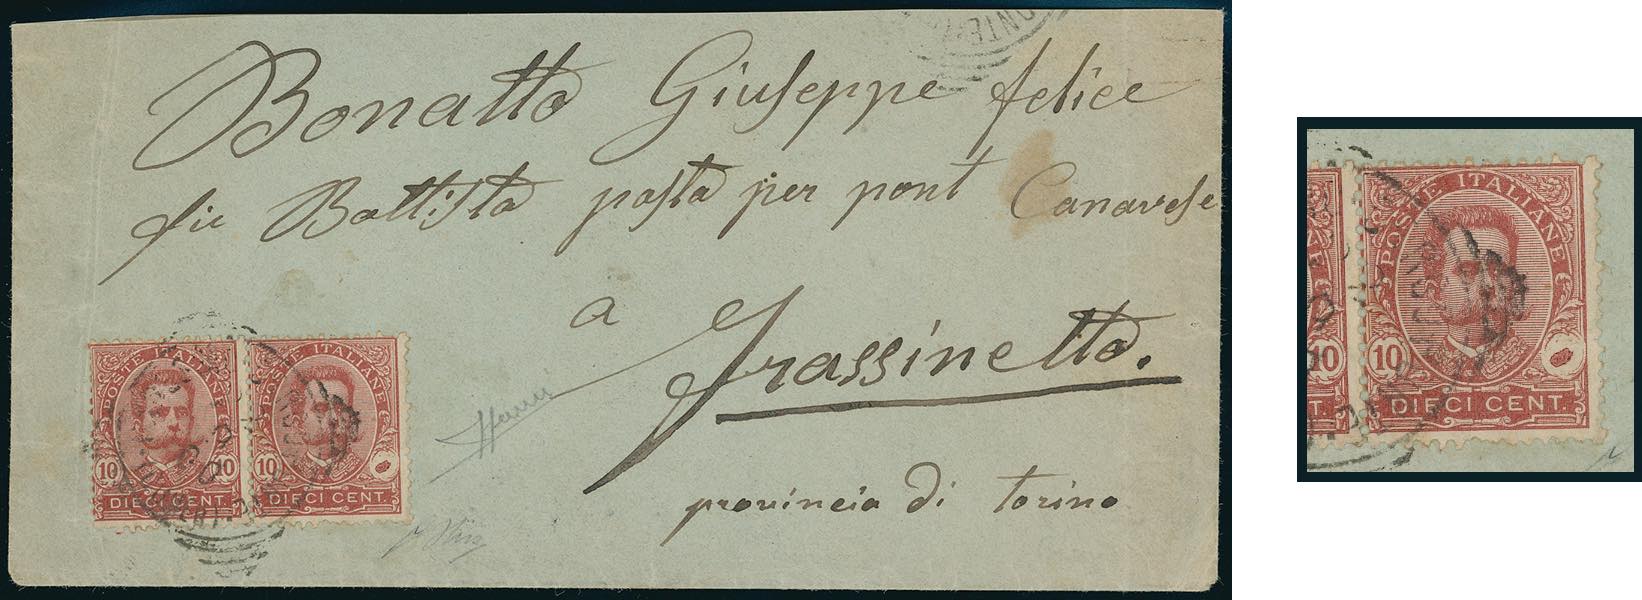 Bonatto Giuseppe felice
fu Battista posta per pont Canavese
a
Frassinetto.
provincia di torino
POSTE ITALIANE
10 10
DIECI CENT.
POSTE ITALIANE
10
DIECI CENT.
POSTE ITALIANE
10
10
DIECI CENT.